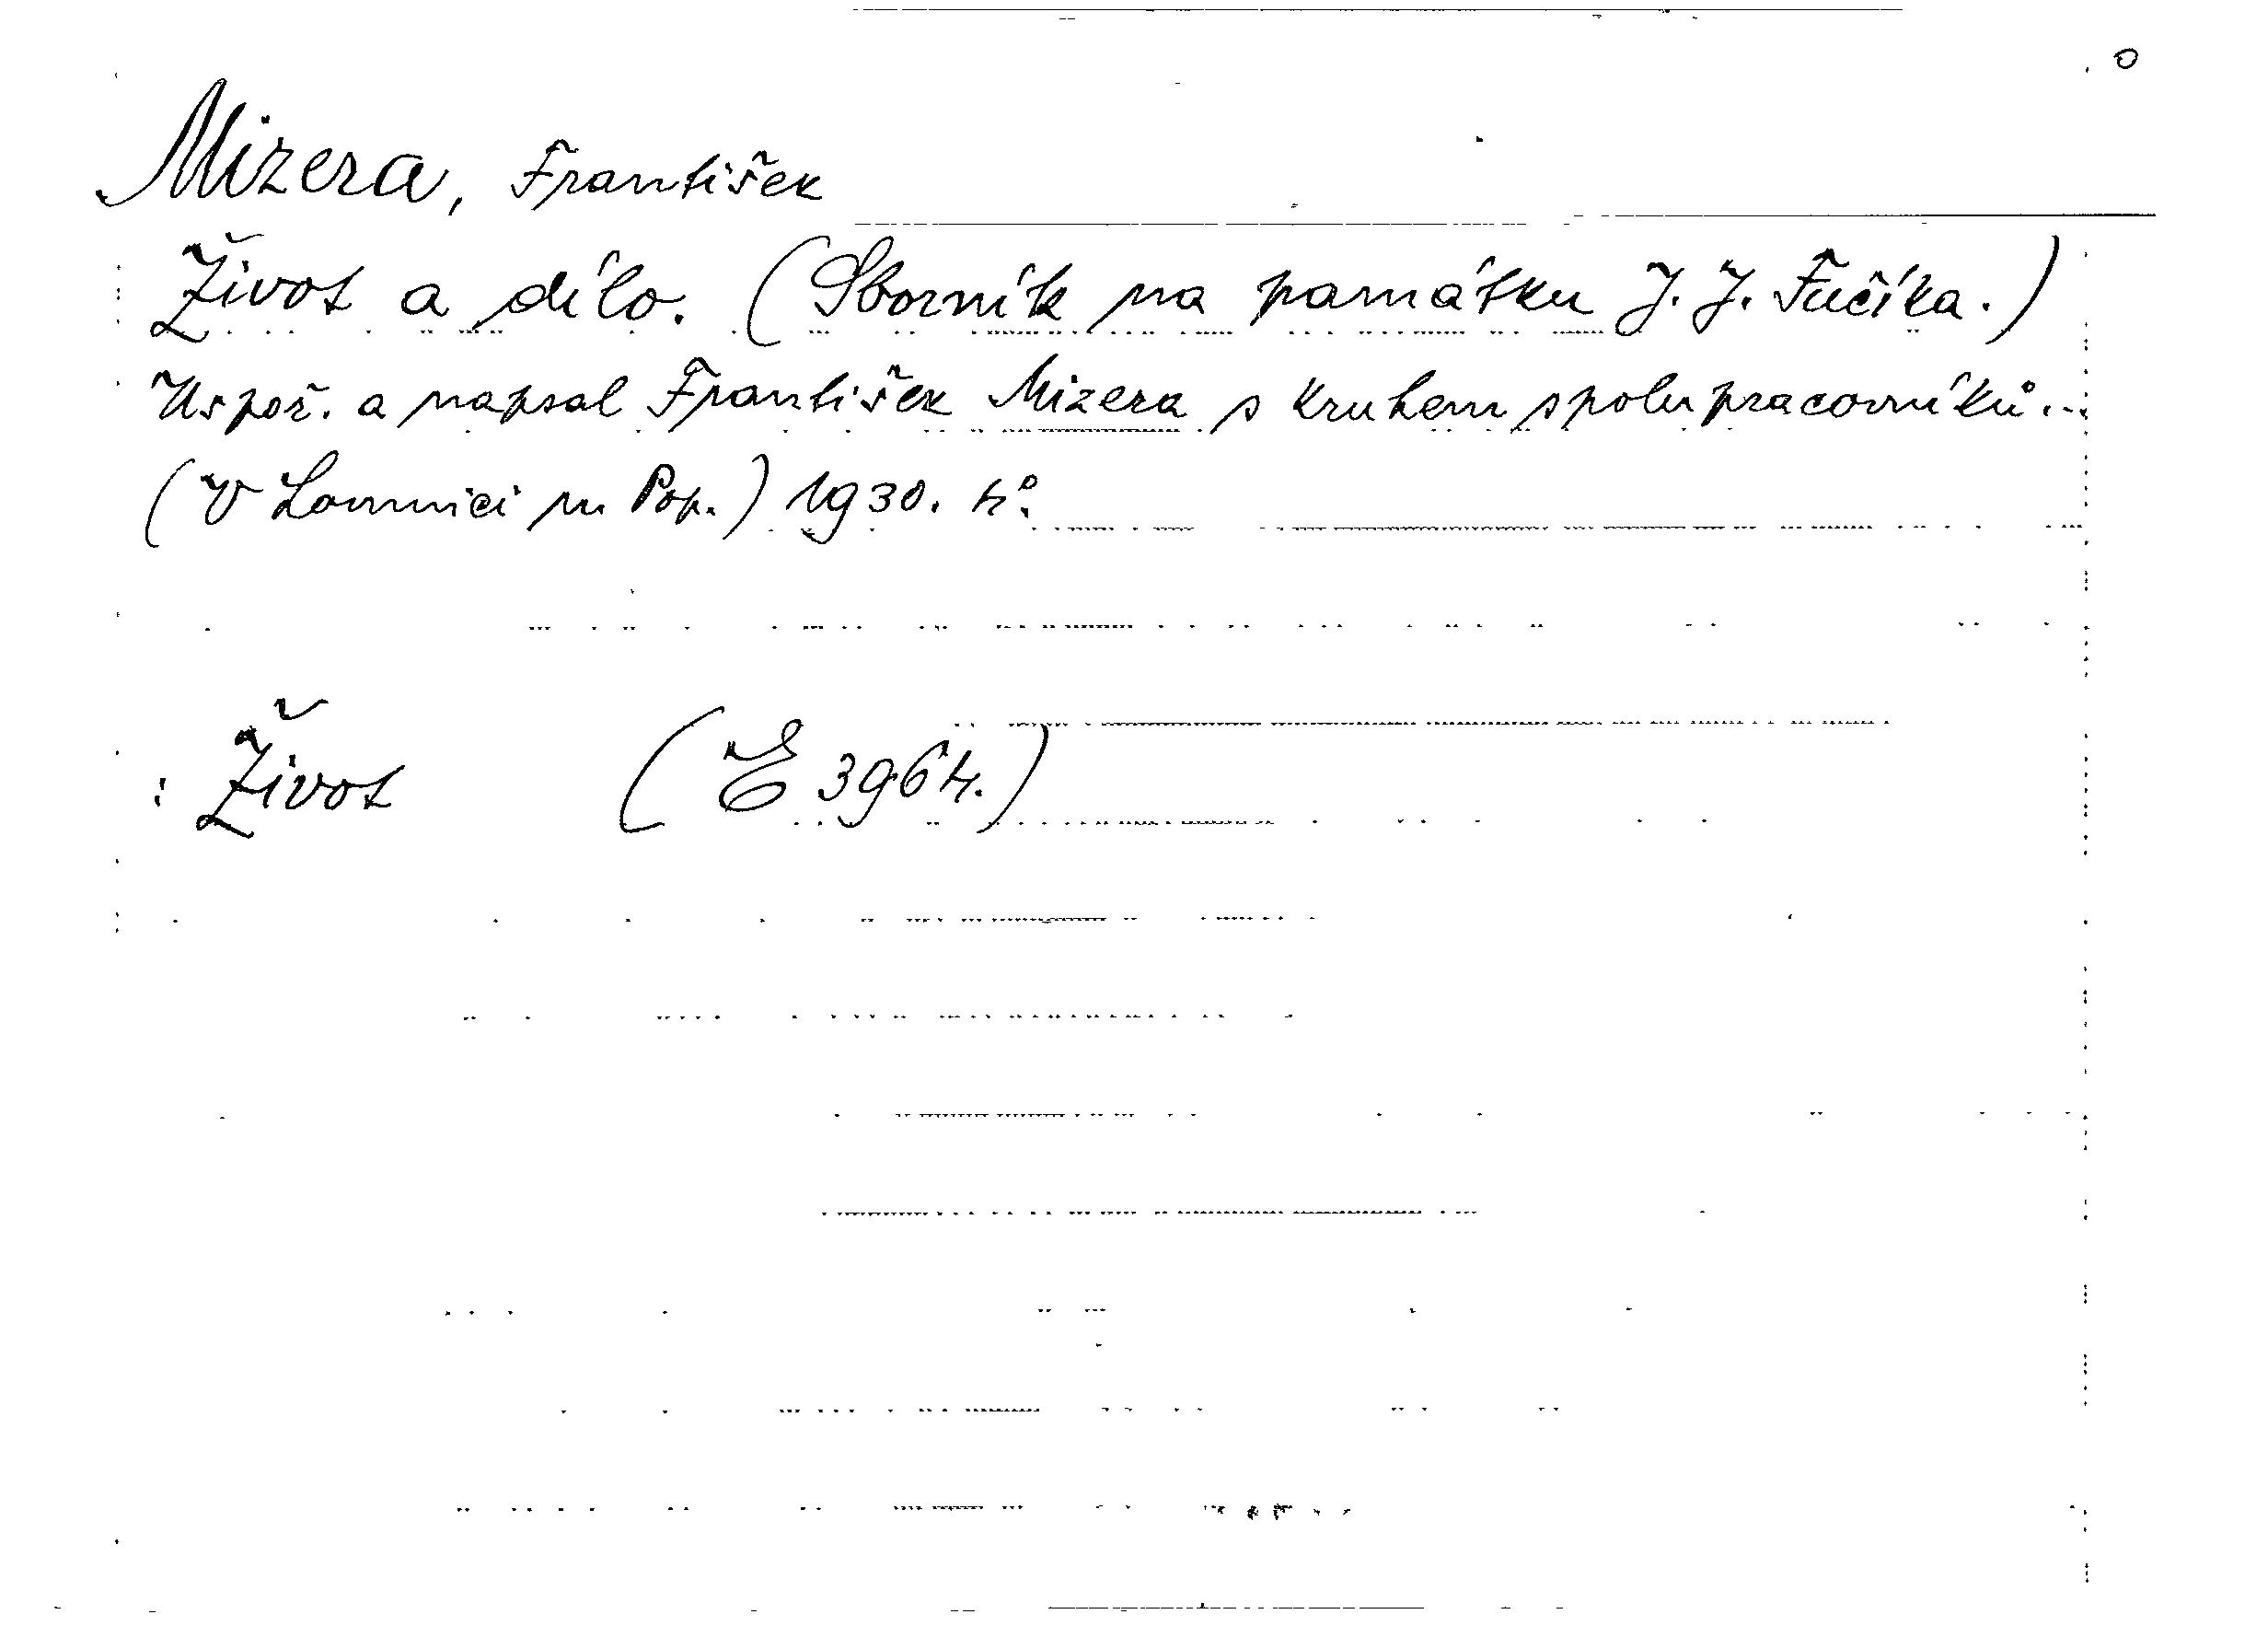 o
Mizera, František
Život a dílo. (Sborník na památku J. J. Fučíka.)
Uspoř. a napsal František Mizera s kruhem spolupracovníků...
(V Lomnici n. Pop.) 1930. 4°.
: Život (E 3964.)